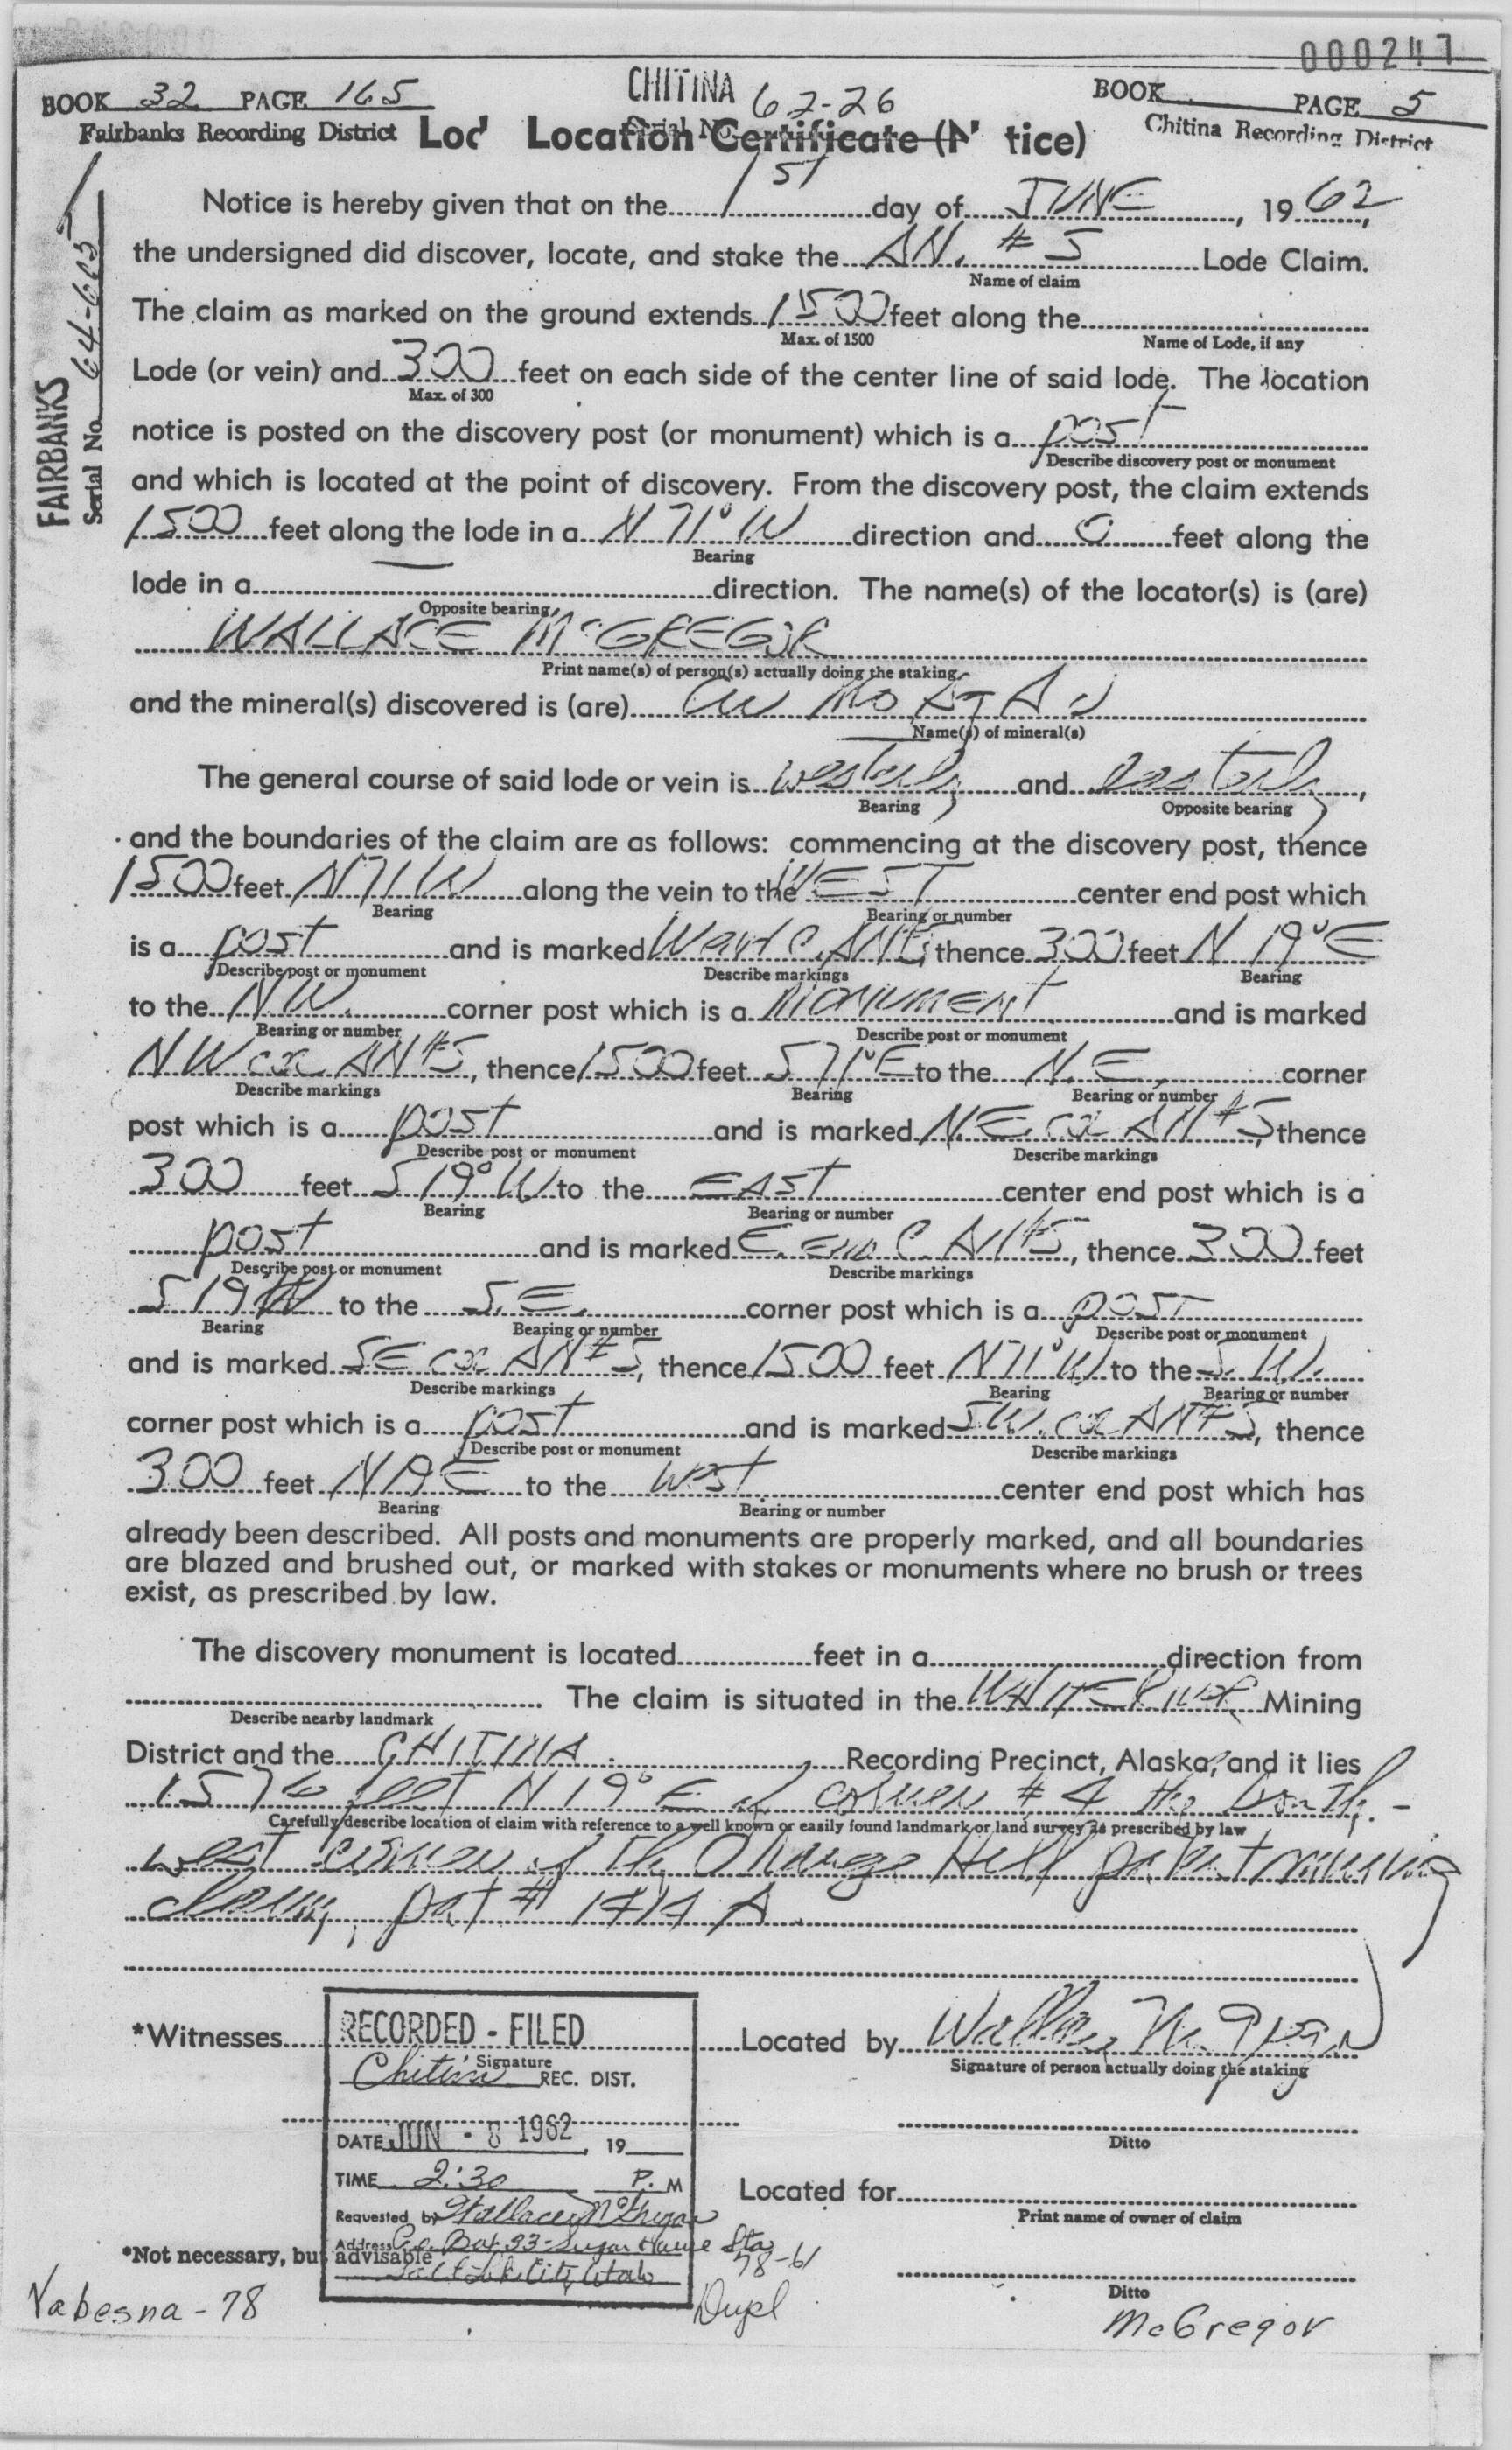 000247
BOOK 32 PAGE 165 CHITINA 62-26 BOOK PAGE 5
Fairbanks Recording District Serial No. Chitina Recording District
Location Certificate ( tice)
FAIRBANKS
Serial No. 64-605
Notice is hereby given that on the 1st day of JUNE, 1962,
the undersigned did discover, locate, and stake the AN. #5 Lode Claim.
Name of claim
The claim as marked on the ground extends 1500 feet along the
Max. of 1500 Name of Lode, if any
Lode (or vein) and 300 feet on each side of the center line of said lode. The location
Max. of 300
notice is posted on the discovery post (or monument) which is a post
Describe discovery post or monument
and which is located at the point of discovery. From the discovery post, the claim extends
1500 feet along the lode in a N 71° W direction and 0 feet along the
Bearing
lode in a — direction. The name(s) of the locator(s) is (are)
Opposite bearing
WALLACE McGREGOR
Print name(s) of person(s) actually doing the staking
and the mineral(s) discovered is (are) Cu Mo Ag Au
Name(s) of mineral(s)
The general course of said lode or vein is westerly and easterly,
Bearing Opposite bearing
and the boundaries of the claim are as follows: commencing at the discovery post, thence
1500 feet N71W along the vein to the WEST center end post which
Bearing Bearing or number
is a post and is marked thence 300 feet N 19° E
Describe post or monument Describe markings Bearing
to the NW. corner post which is a MONUMENT and is marked
Bearing or number Describe post or monument
NW cor AN#5, thence 1500 feet S71°E to the N.E. corner
Describe markings Bearing Bearing or number
post which is a post and is marked N.E. cor AN#5, thence
Describe post or monument Describe markings
300 feet S 19° W to the EAST center end post which is a
Bearing Bearing or number
post and is marked E. END C. AN#5, thence 300 feet
Describe post or monument Describe markings
S 19 W to the S.E. corner post which is a post
Bearing Bearing or number Describe post or monument
and is marked SE cor AN#5, thence 1500 feet N71°W to the S.W.
Describe markings Bearing Bearing or number
corner post which is a post and is marked SW. cor AN#5, thence
Describe post or monument Describe markings
300 feet N19E to the West center end post which has
Bearing Bearing or number
already been described. All posts and monuments are properly marked, and all boundaries
are blazed and brushed out, or marked with stakes or monuments where no brush or trees
exist, as prescribed by law.
The discovery monument is located feet in a direction from
. The claim is situated in the WHITE RIVER Mining
Describe nearby landmark
District and the CHITINA Recording Precinct, Alaska, and it lies
1576 feet N 19° E of corner #4 the South-
Carefully describe location of claim with reference to a well known or easily found landmark or land survey as prescribed by law
west corner of the Orange Hill patent mining
claim, pat # 1414 A
*Witnesses Located by Wallace McGregor
Signature Signature of person actually doing the staking
RECORDED - FILED
Chitina REC. DIST.
DATE JUN - 8 1962, 19
Ditto
TIME 2:30 P. M
Located for
Requested by Wallace McGregor
Print name of owner of claim
Address P.O. Box 33 - Sugar House Sta
*Not necessary, but advisable
Salt Lake City, Utah
78-61
Ditto
Nabesna - 78 Dupl McGregor